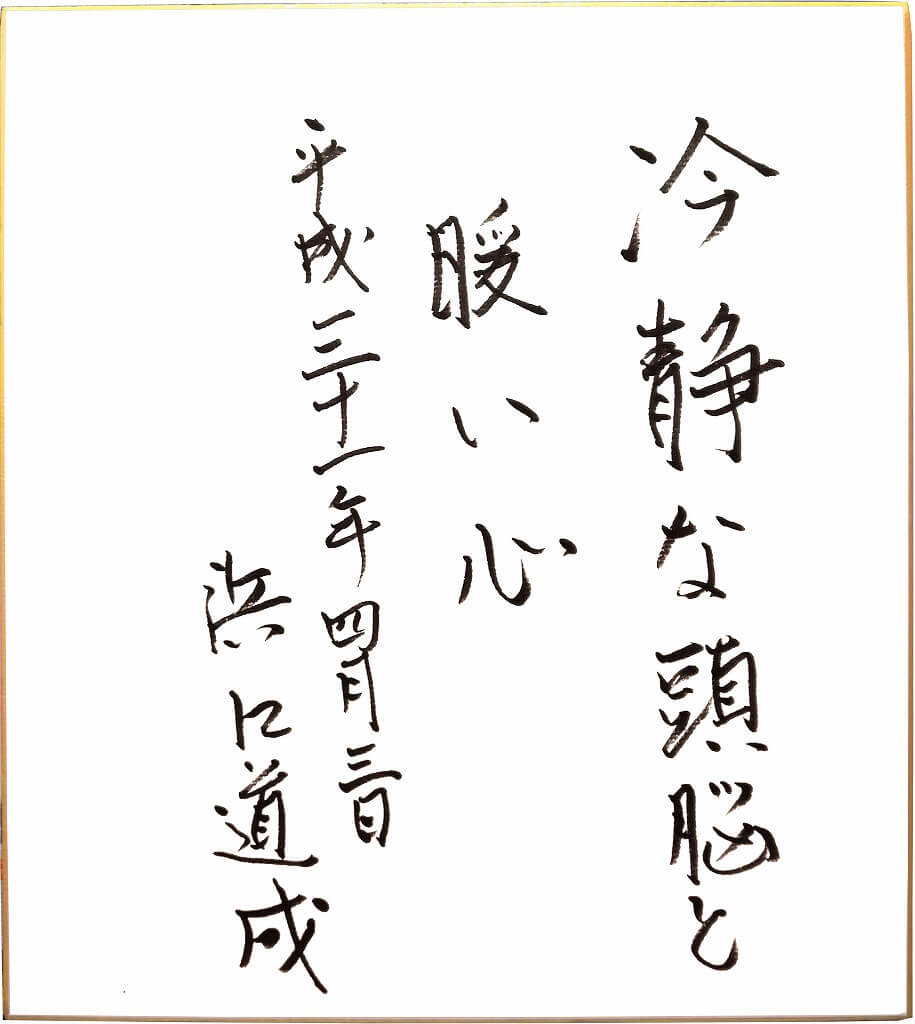 冷静な頭脳と
暖い心
平成三十一年四月三日
浜口道成